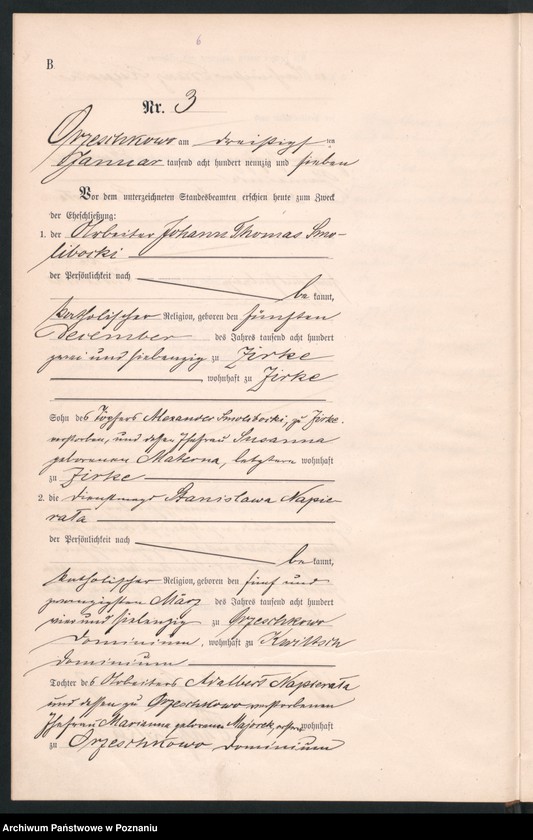 6
B
Nr. 3
Orzeschkowo am dreißigsten
Januar tausend acht hundert neunzig und sieben
Vor dem unterzeichneten Standesbeamten erschien heute zum Zweck
der Eheschließung:
1. der Arbeiter Johann Thomas Smo-
liborski
der Persönlichkeit nach
be kannt,
katholischer Religion, geboren den fünften
Dezember des Jahres tausend acht hundert
zwei und siebenzig zu Zirke
, wohnhaft zu Zirke
Sohn des Töpfers Alexander Smoliborski, zu Zirke
verstorben, und dessen Ehefrau Susanna
geborenen Matecna, letztere wohnhaft
zu Zirke
2. die Dienstmagd Stanislawa Napie-
rala
der Persönlichkeit nach
be kannt,
katholischer Religion, geboren den fünf und
zwanzigsten März des Jahres tausend acht hundert
vier und siebenzig zu Orzeschkowo
Dominium, wohnhaft zu Kwiltsch
Dominium
Tochter des Arbeiters Adalbert Napierala
und dessen zu Orzeschkowo verstorbenen
Ehefrau Marianna geborenen Majorek, wohnhaft
zu Orzeschkowo Dominium
Archiwum Państwowe w Poznaniu